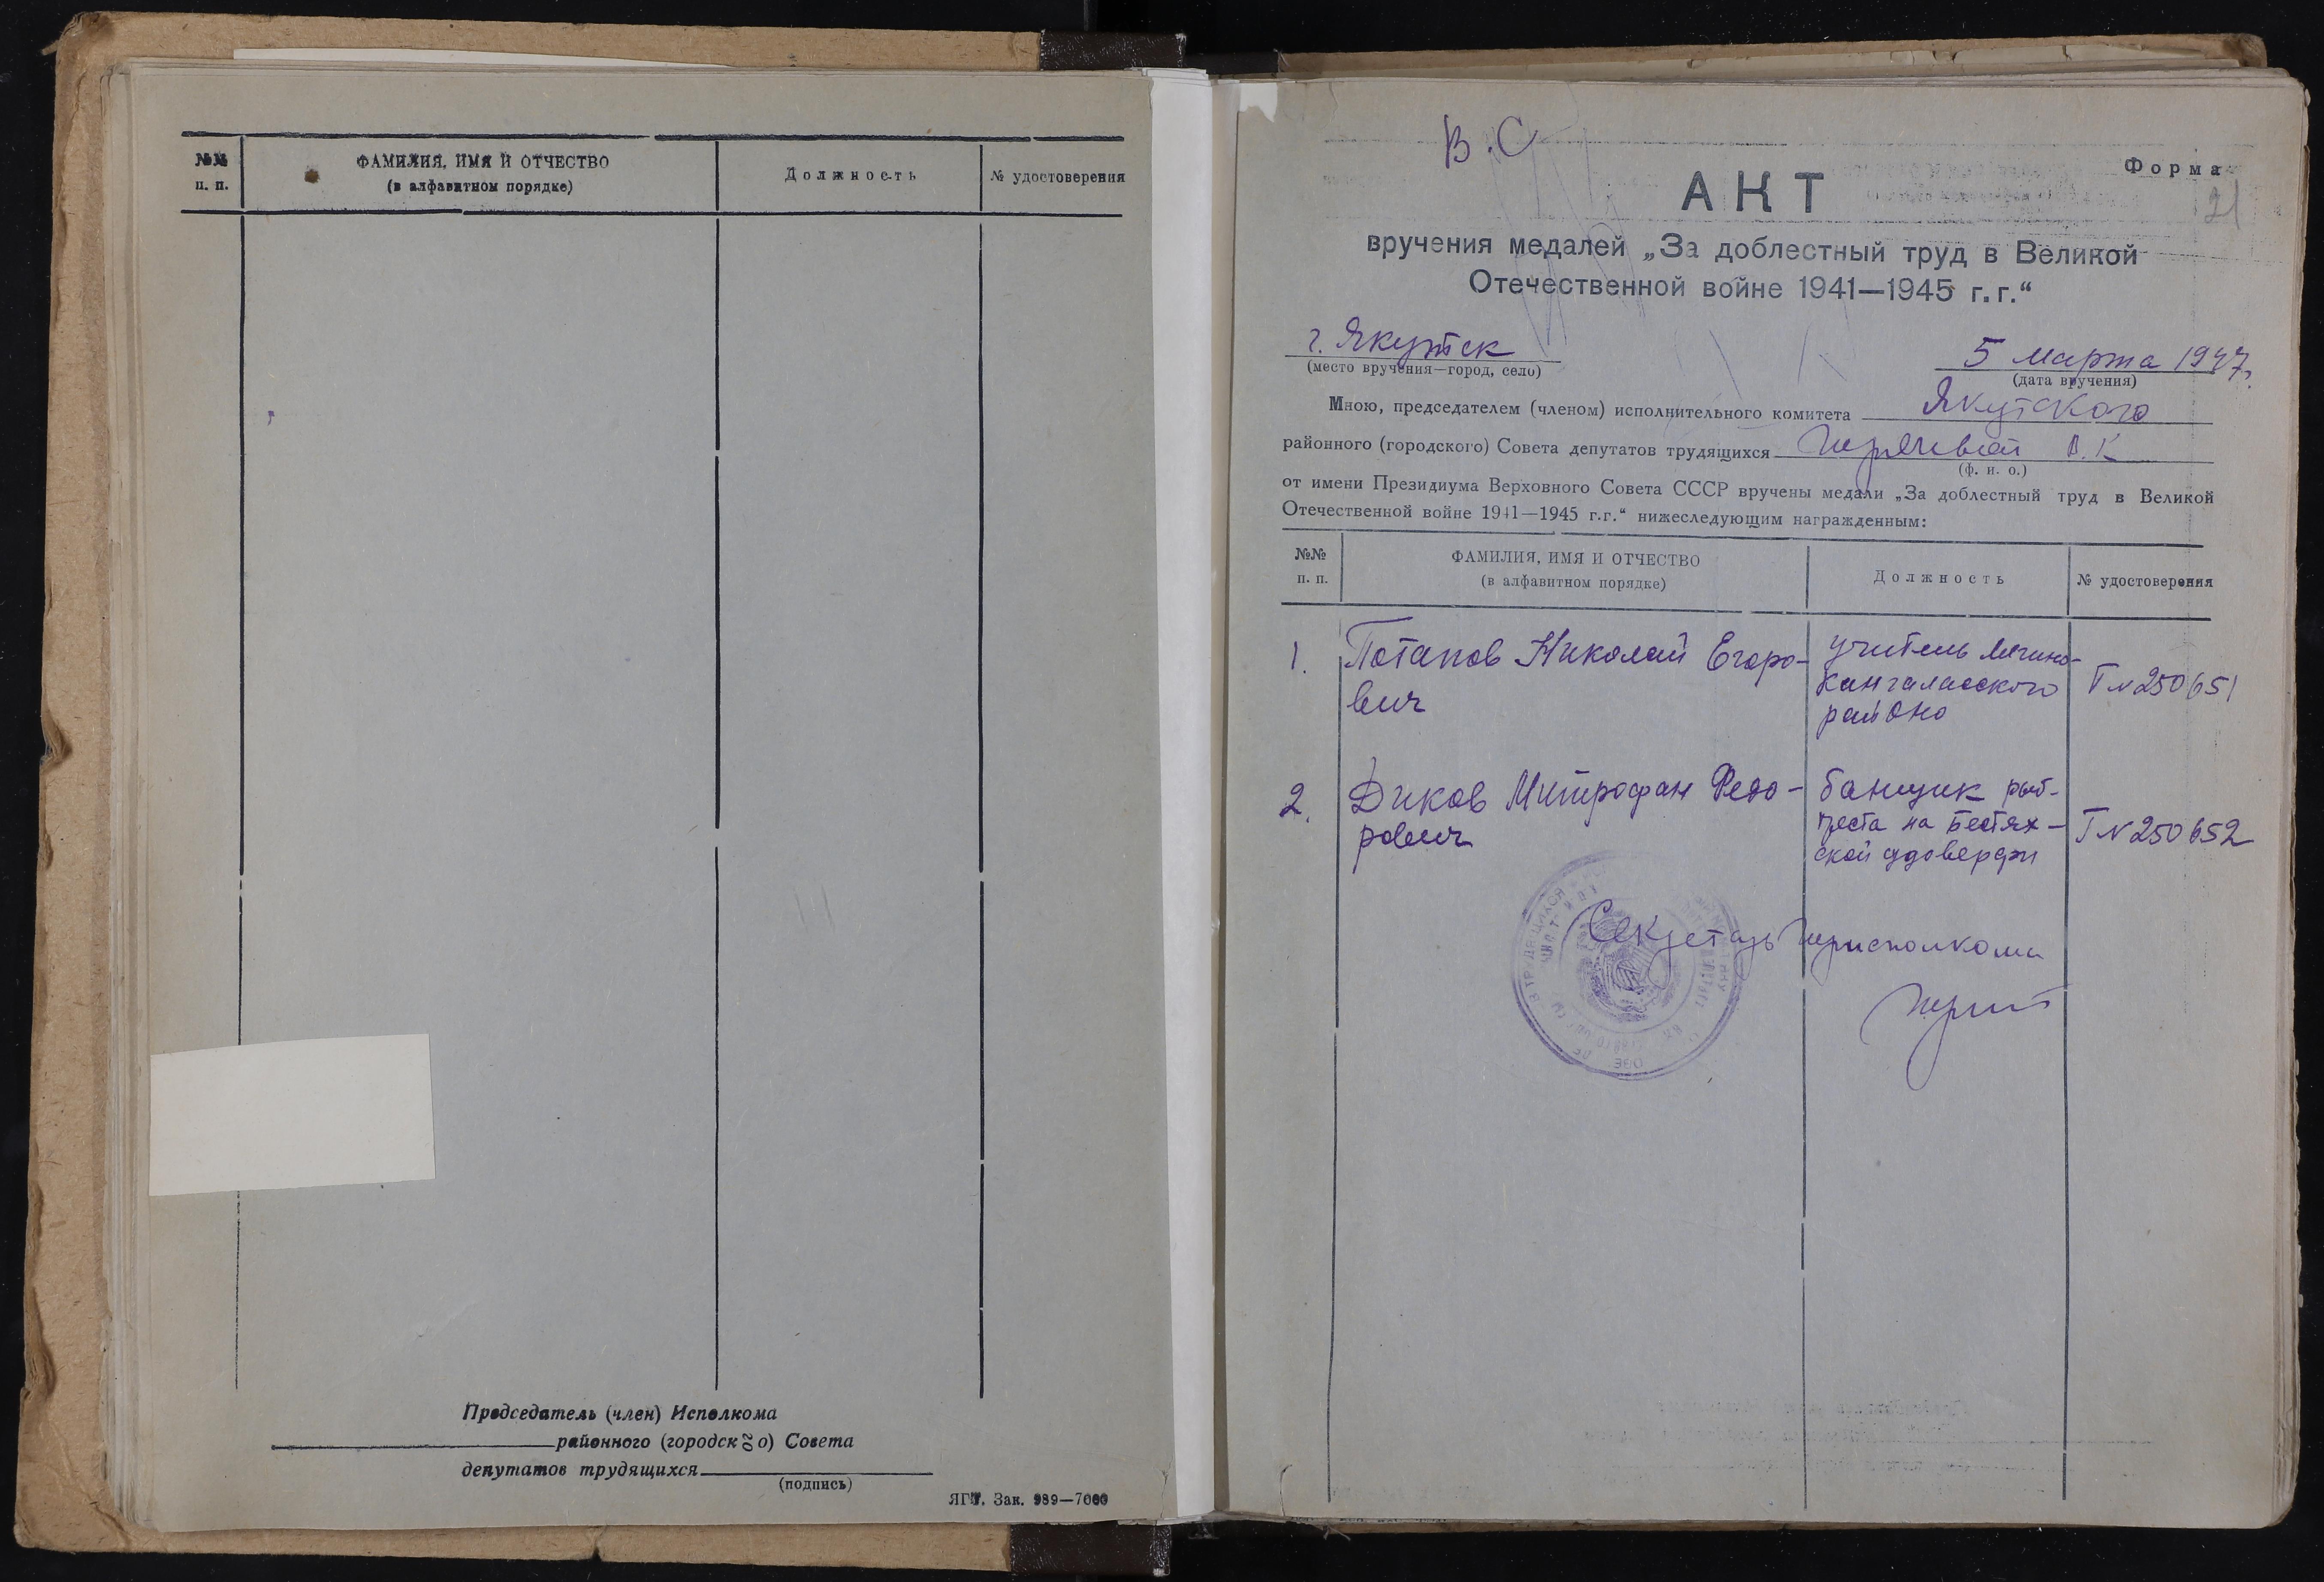 №№
п. п.
ФАМИЛИЯ, ИМЯ И ОТЧЕСТВО
(в алфавитном порядке)
Должность
№ удостоверения
Председатель (член) Исполкома
районного (городского) Совета
депутатов трудящихся
(подпись)
ЯГТ. Зак. 989—7000
В.С
Форма
21
АКТ
вручения медалей „За доблестный труд в Великой
Отечественной войне 1941—1945 г.г.“
г. Якутск
(место вручения—город, село)
5 марта 1947г.
(дата вручения)
Мною, председателем (членом) исполнительного комитета Якутского
районного (городского) Совета депутатов трудящихся В.К
(ф. и. о.)
от имени Президиума Верховного Совета СССР вручены медали „За доблестный труд в Великой
Отечественной войне 1941—1945 г.г.“ нижеследующим награжденным:
№№
п. п.
ФАМИЛИЯ, ИМЯ И ОТЧЕСТВО
(в алфавитном порядке)
Должность
№ удостоверения
1. Потапов Николай Егоро-
вич
учитель Мегино-
Кангаласского
района
Г № 250651
2. Диков Митрофан Федо-
рович
банщик рыб-
треста на Бестях-
ской
Г № 250652
Секретарь Горисполкома